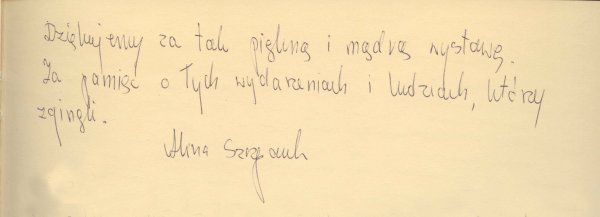 Dziękujemy za tak piękną i mądrą wystawę.
Za pamięć o Tych wydarzeniach i ludziach, którzy
zginęli.
Alina